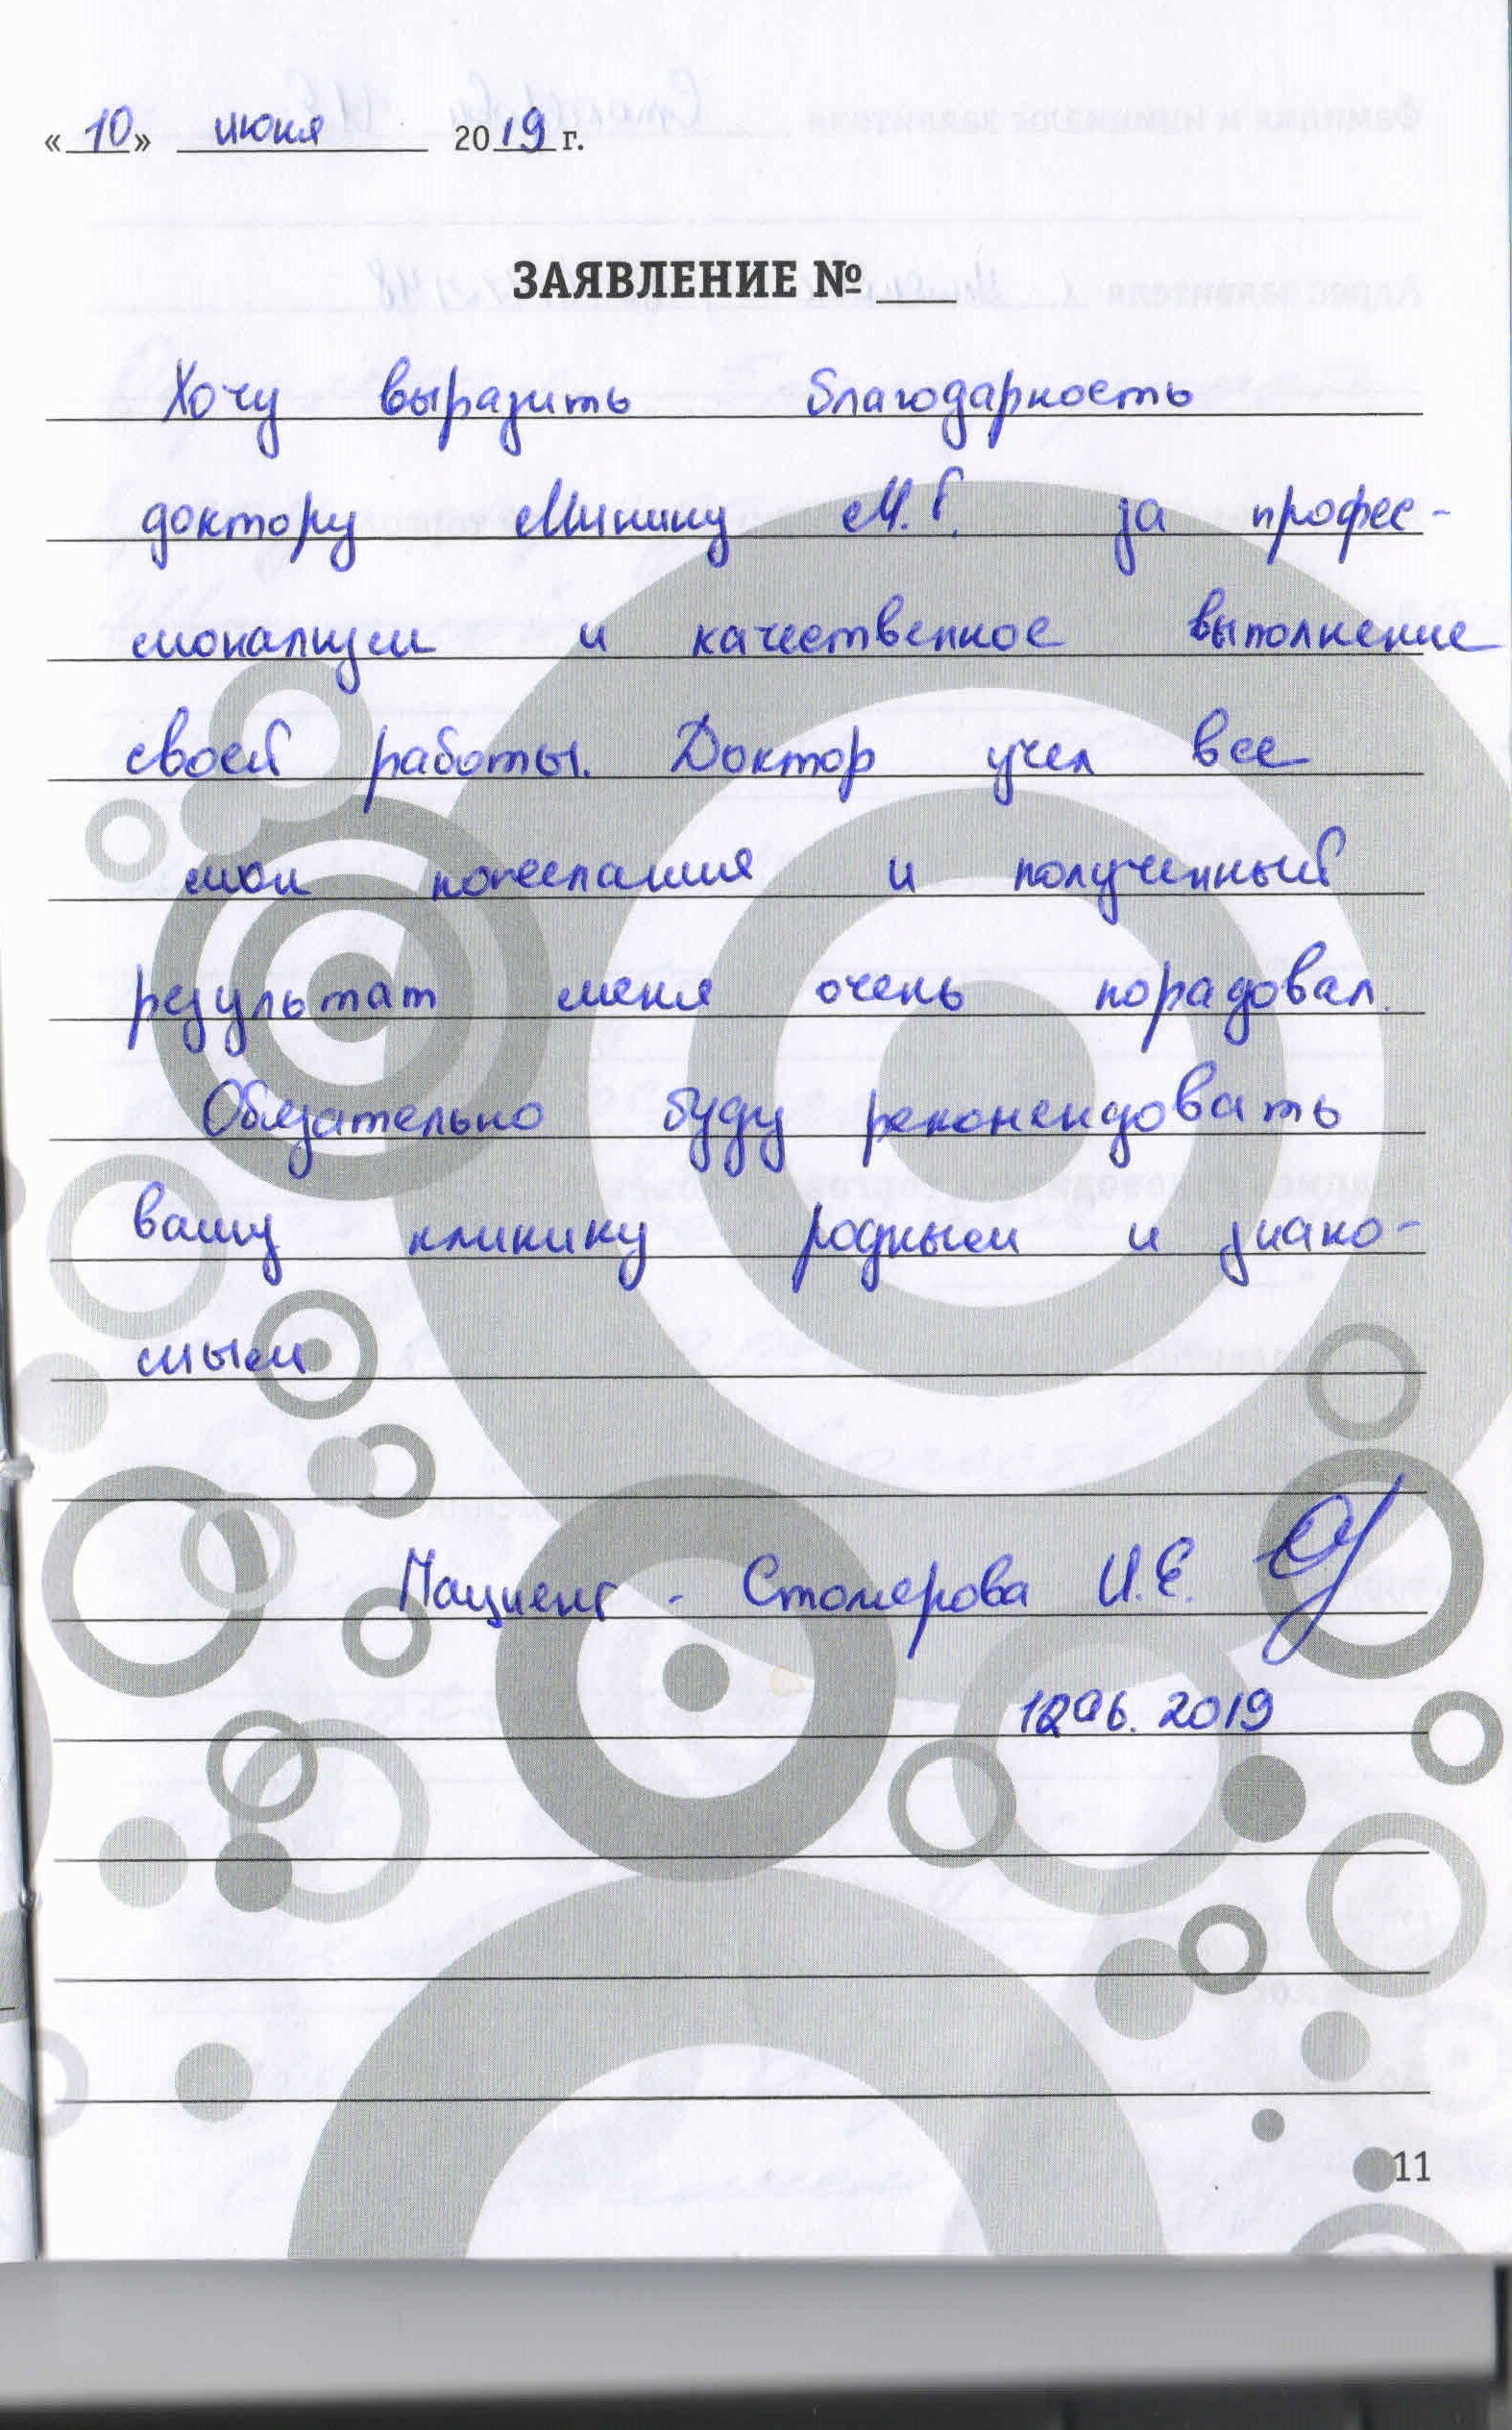 «10» июня 2019 г.
ЗАЯВЛЕНИЕ № ____
Хочу выразить благодарность
доктору Минину М.Г. за профес-
сионализм и качественное выполнение
своей работы. Доктор учел все
мои пожелания и полученный
результат меня очень порадовал.
Обязательно буду рекомендовать
вашу клинику родным и знако-
мым
Пациент - Столерова И.Е.
2019
11